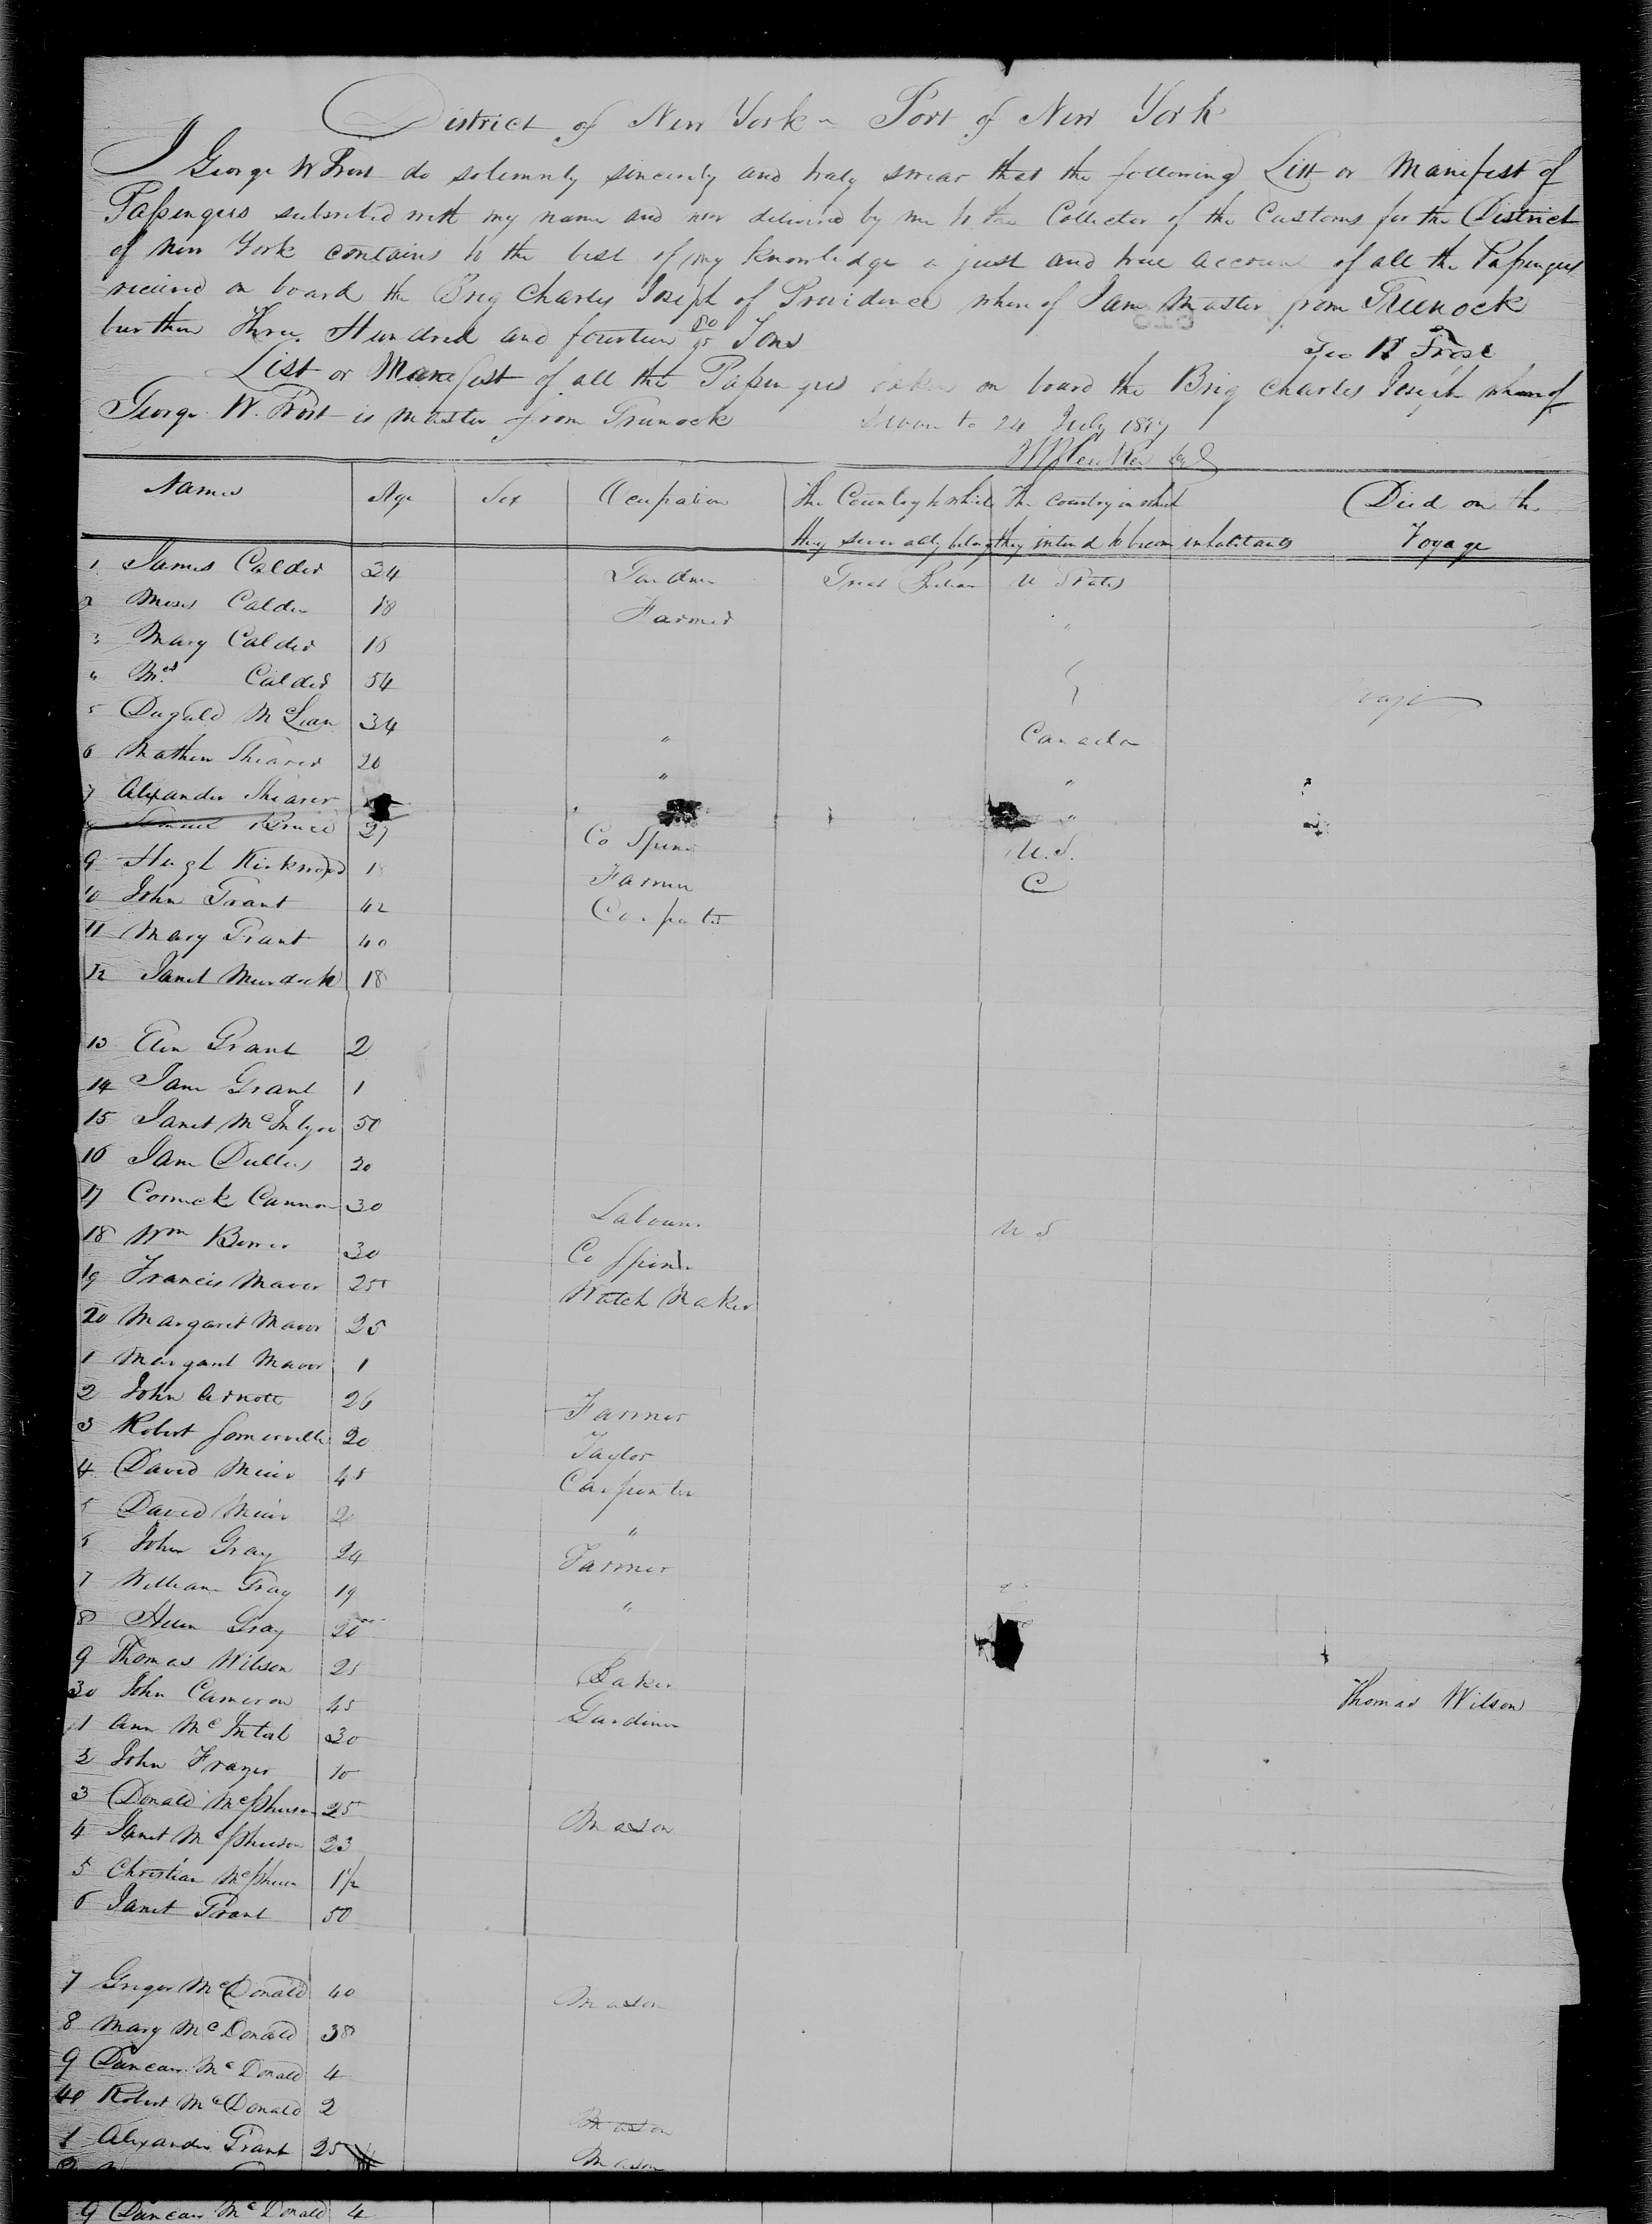 District of New York - Port of New York
I George W Frost do solemnly sincerely and truly swear that the following List or Manifest of
Passengers subscribed with my name and now delivered by me to the Collector of the Customs for the District
of New York contains to the best of my knowledge a just and true account of all the Passengers
received on board the Brig Charles Joseph of Providence where of I am Master from Greenock
burthen Three Hundred and fourteen 80/95 Tons
Geo W Frost
List or Manifest of all the Passengers taken on board the Brig Charles Joseph whereof
George W. Frost is master from Greenock Sworn to 24 July 18
Names Age Sex Ocupation The Country to which they severally belong The Country in which they intend to become inhabitants Died on the Voyage
1 James Calder 34 Gardner Great Britain U States
2 Moses Calder 18 Farmer "
3 Mary Calder 16
4 Mrs Calder 54
5 Dugald McLean 34 " Canada
6 Mathew Shearer 20 " "
7 Alexander Shearer "
Samuel Bruce 27 Co Spinr U.S.
9 Hugh Kirkwood 18 Farmer C
10 John Grant 42 Carpenter
11 Mary Grant 40
12 Janet Murdock 18
13 Ann Grant 2
14 Jane Grant 1
15 Janet McIntyre 50
16 Jane 20
17 Cormick Cannon 30 Labourer U S
18 Wm 30 Co Spinr
19 Francis Mavor 25 Watch Maker
20 Margaret Mavor 25
1 Margaret Mavor 1
2 John Arnott 26 Farmer
3 Robert Somerville 20 Taylor
4 David Muir 45 Carpenter
5 David Muir "
6 John Gray 24 Farmer
7 William Gray 19 "
8 Gray 20
9 Thomas Wilson 25 Baker Thomas Wilson
30 John Cameron 45 Gardiner
1 Ann McIntosh 30
2 John Frazer 10
3 Donald McPherson 25 Mason
4 Janet McPherson 23
5 Christian McPherson 1 1/2
6 Janet Grant 50
7 Gregor McDonald 40 Mason
8 Mary McDonald 38
9 Duncan McDonald 4
40 Robert McDonald 2 Mason
1 Alexander Grant 25 Mason
9 Duncan McDonald 4